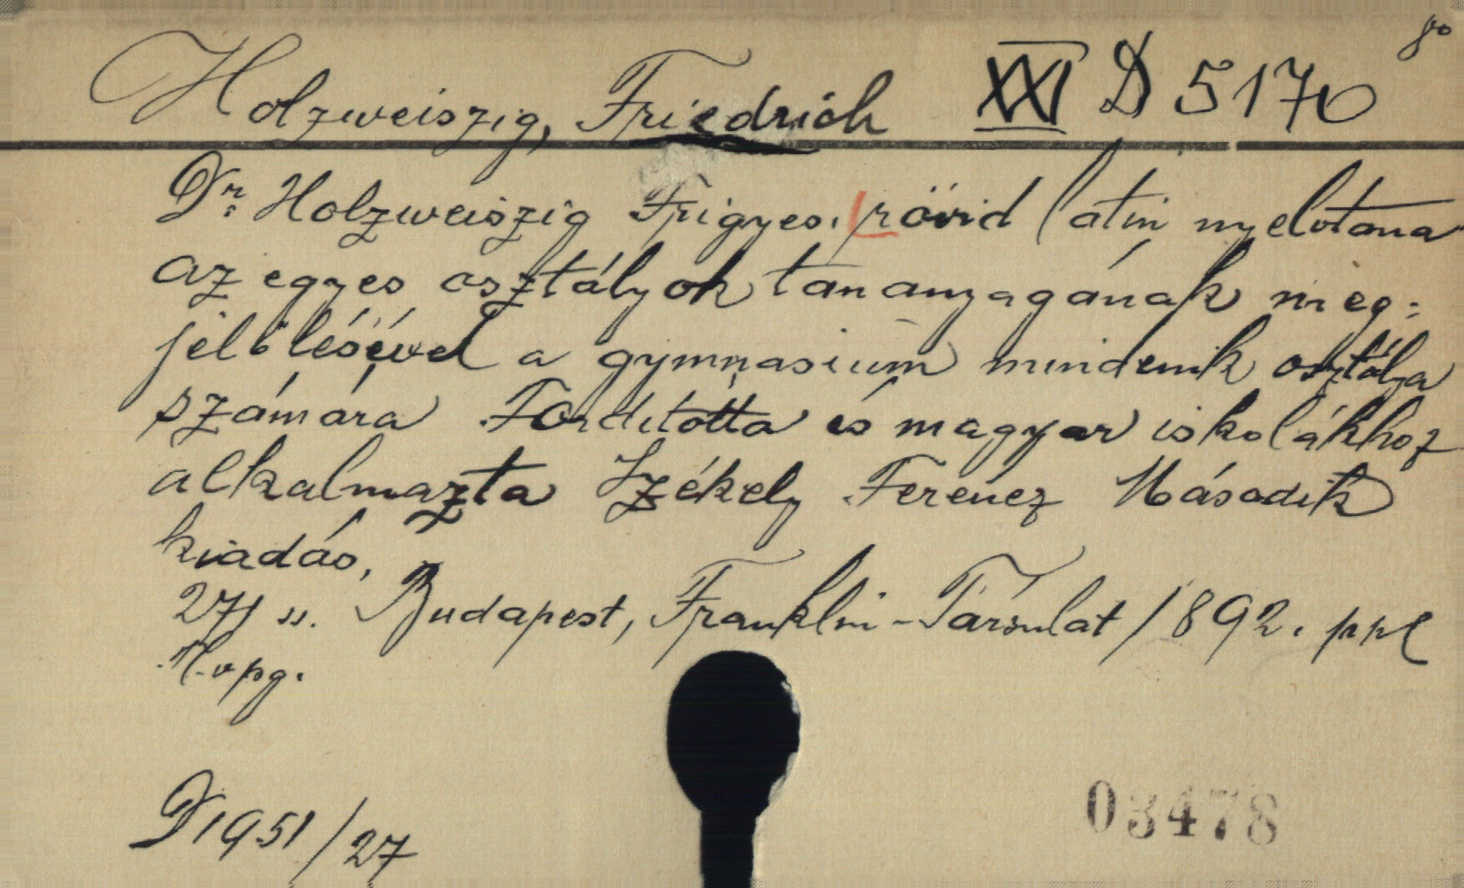 8°
Holzweiszig, Friedrich XXI D 5170
Dr. Holzweiszig Frigyes. rövid latin nyelvtana
az egyes osztályok tananyagának meg-
jelölésével a gymnasium mindenik osztálya
számára Fordította és magyar iskolákhoz
alkalmazta Székely Ferencz Második
kiadás,
271 ll. Budapest, Franklin-Társulat 1892. ppl
M. v pg.
D 1951/27
03478